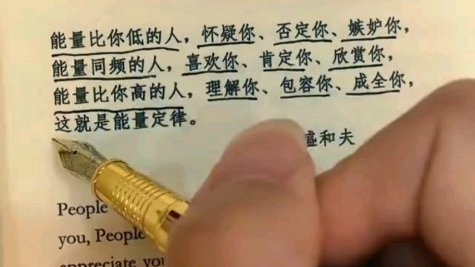 能量比你低的人，怀疑你、否定你、嫉妒你，
能量同频的人，喜欢你、肯定你、欣赏你，
能量比你高的人，理解你、包容你、成全你，
这就是能量定律。
盛和夫
People
you, People
appreciate you